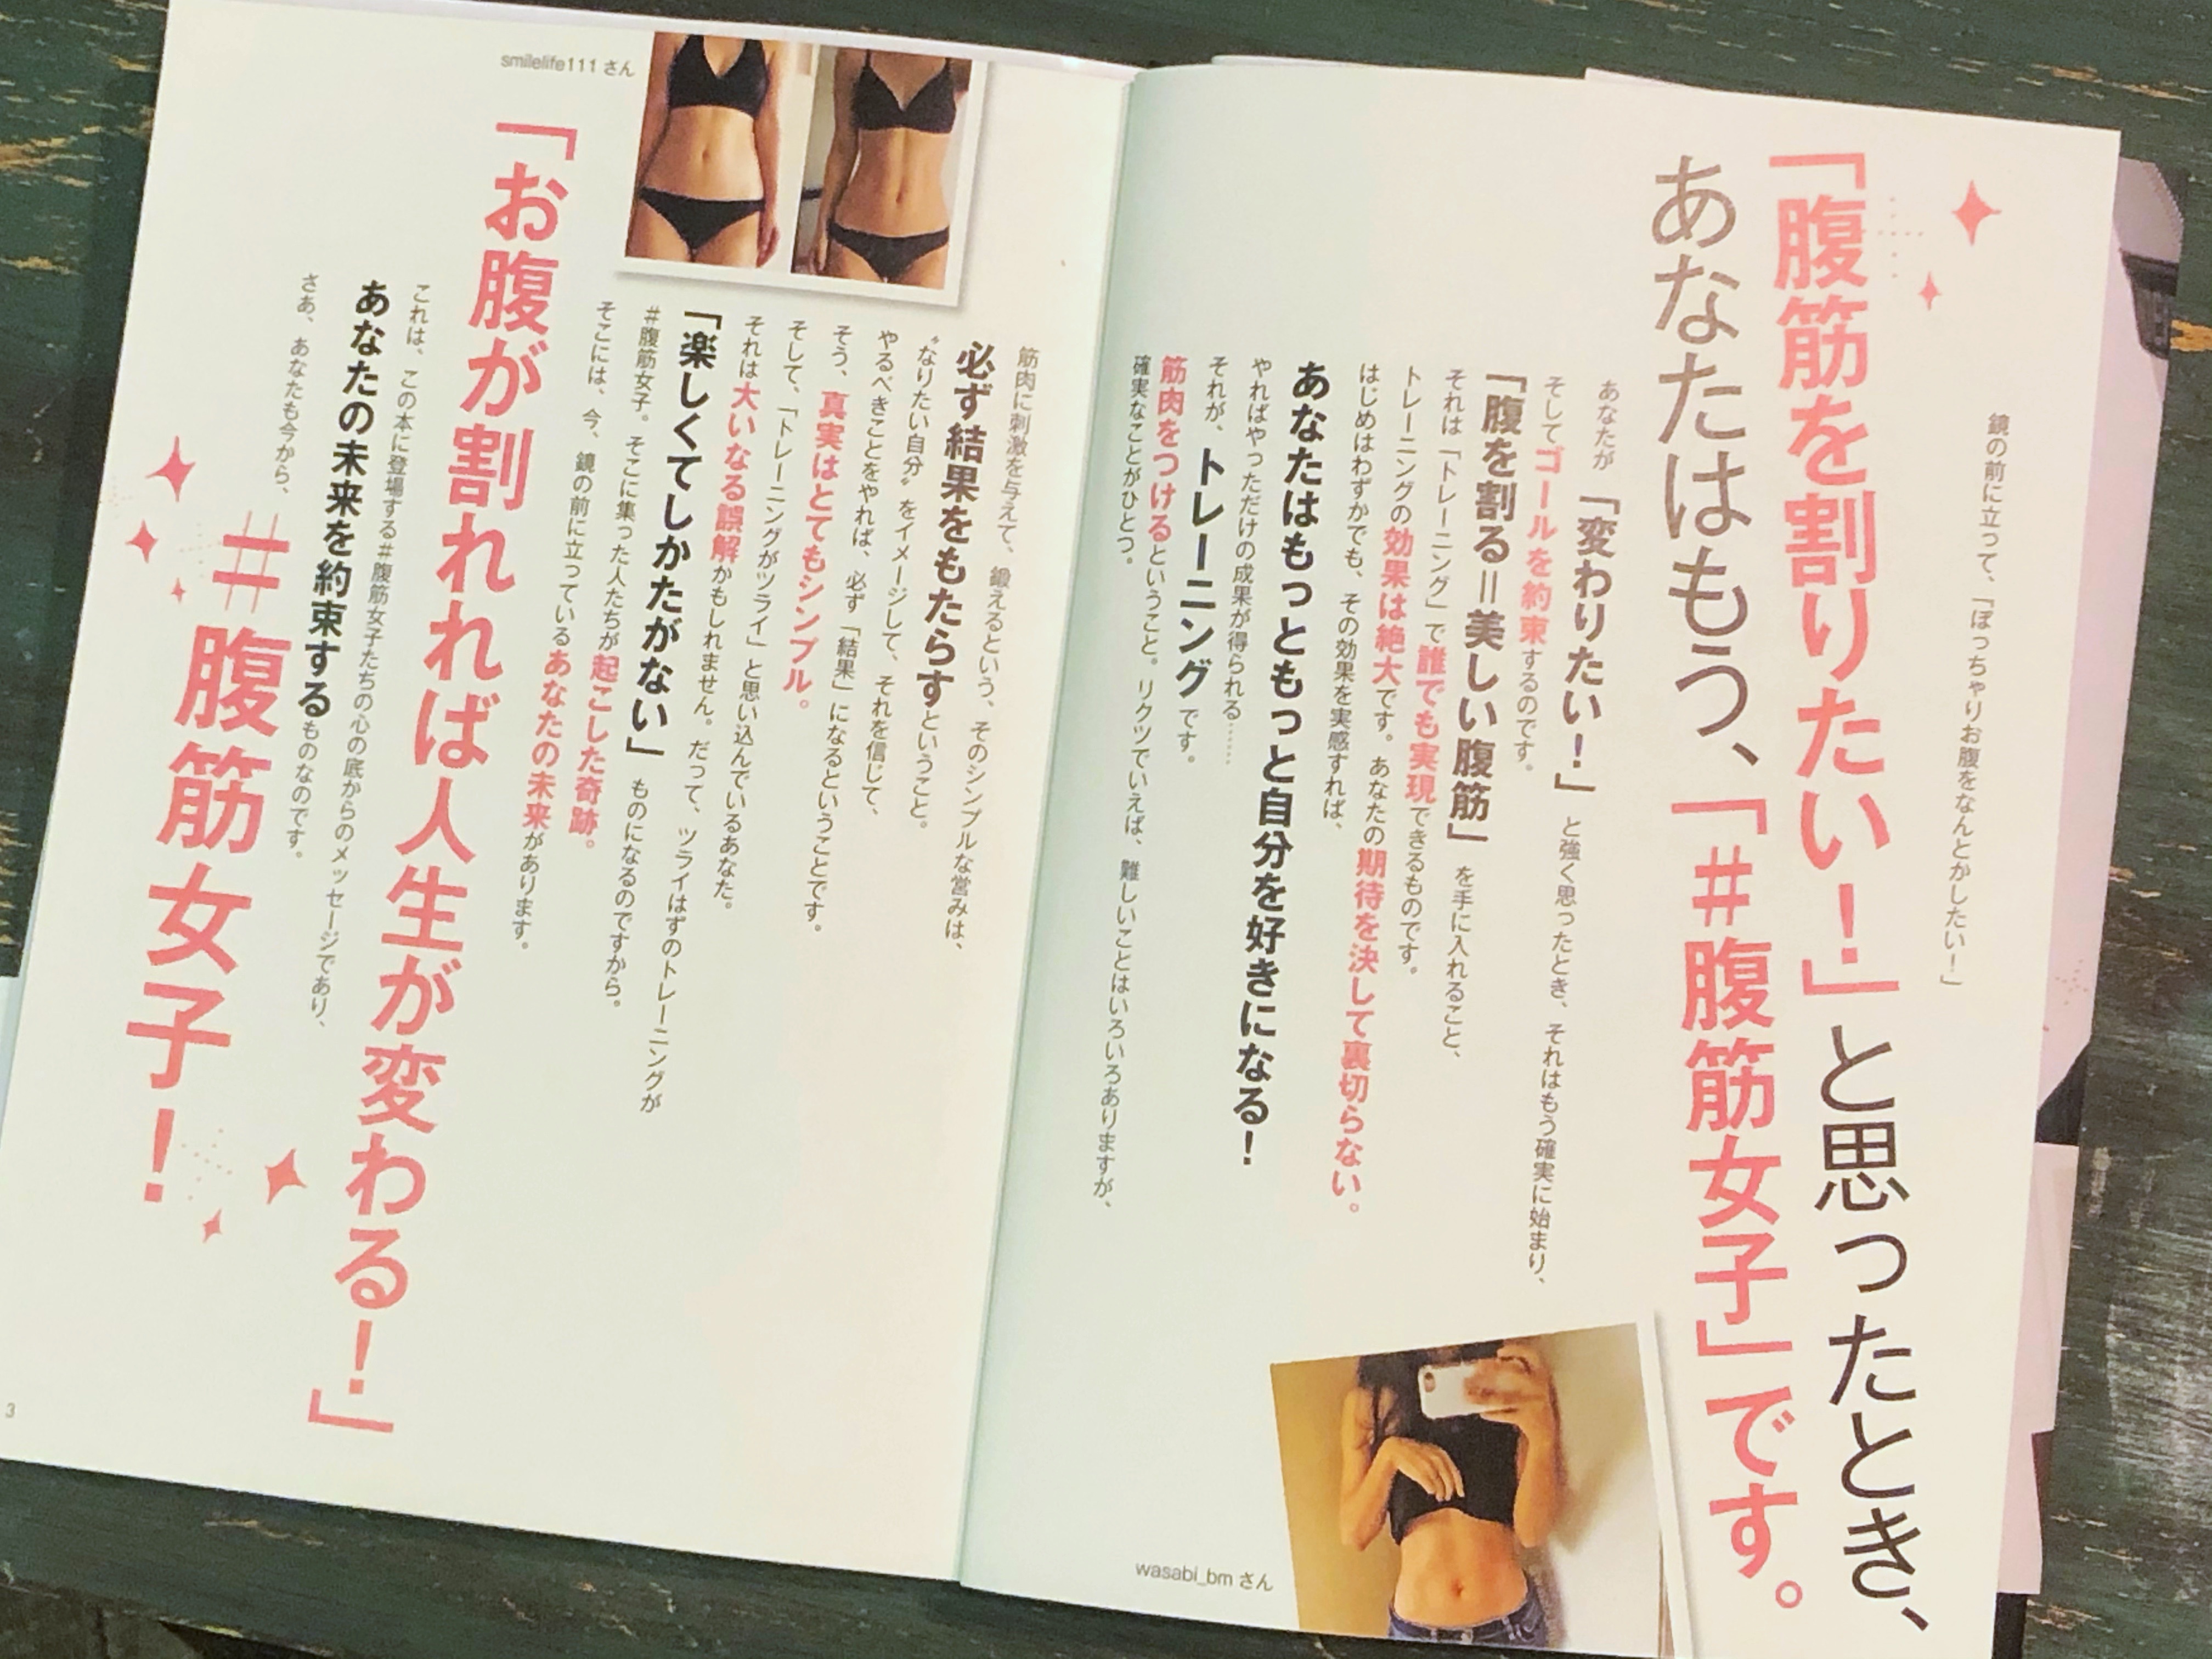 鏡の前に立って、「ぽっちゃりお腹をなんとかしたい！」
「腹筋を割りたい！」と思ったとき、
あなたはもう、「＃腹筋女子」です。
あなたが「変わりたい！」と強く思ったとき、それはもう確実に始まり、
そしてゴールを約束するのです。
「腹を割る＝美しい腹筋」を手に入れること、
それは「トレーニング」で誰でも実現できるものです。
トレーニングの効果は絶大です。あなたの期待を決して裏切らない。
はじめはわずかでも、その効果を実感すれば、
あなたはもっともっと自分を好きになる！
やればやっただけの成果が得られる……
それが、トレーニングです。
筋肉をつけるということ。リクツでいえば、難しいことはいろいろありますが、
確実なことがひとつ。
wasabi_bm さん
筋肉に刺激を与えて、鍛えるという、そのシンプルな営みは、
必ず結果をもたらすということ。
“なりたい自分”をイメージして、それを信じて、
やるべきことをやれば、必ず「結果」になるということです。
そう、真実はとてもシンプル。
そして、「トレーニングがツライ」と思い込んでいるあなた。
それは大いなる誤解かもしれません。だって、ツライはずのトレーニングが
「楽しくてしかたがない」ものになるのですから。
＃腹筋女子。そこに集った人たちが起こした奇跡。
そこには、今、鏡の前に立っているあなたの未来があります。
smilelife111 さん
「お腹が割れれば人生が変わる！」
これは、この本に登場する＃腹筋女子たちの心の底からのメッセージであり、
あなたの未来を約束するものなのです。
さあ、あなたも今から、
＃腹筋女子！
3